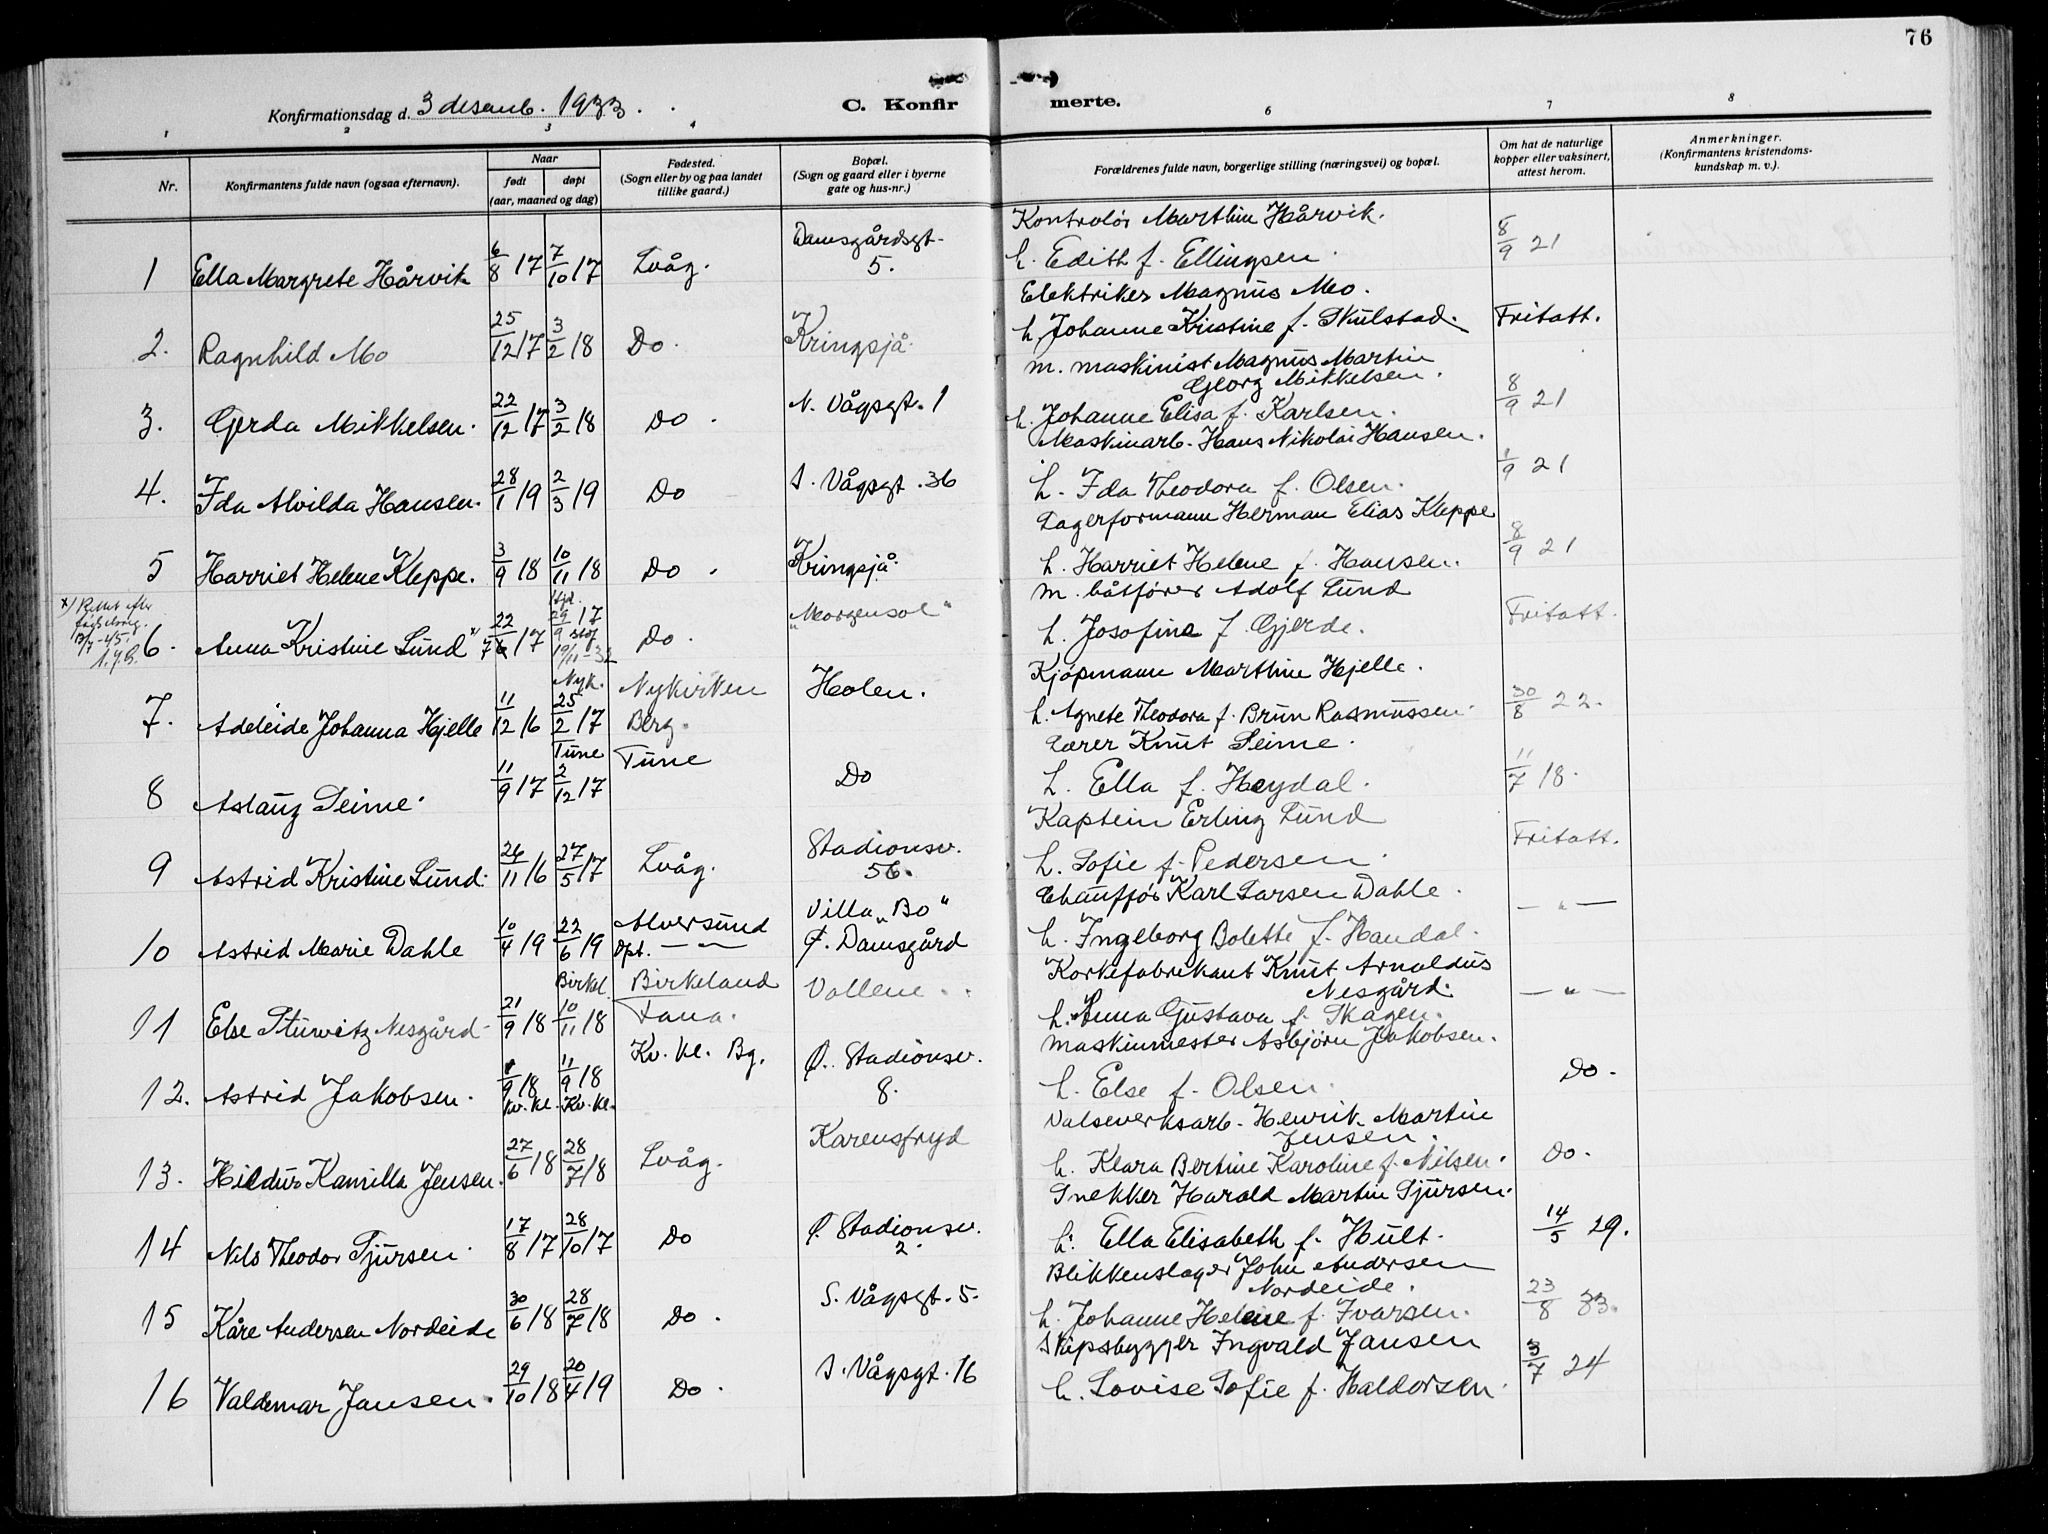 76
Konfirmationsdag d. 3 desemb. 1933.
C. Konfirmerte.
1 2 3 4 6 7 8
Nr.
Konfirmantens fulde navn (ogsaa efternavn).
Naar
født døpt
(aar, maaned og dag)
Fødested.
(Sogn eller by og paa landet
tillike gaard.)
Bopæl.
(Sogn og gaard eller i byerne
gate og hus-nr.)
Forældrenes fulde navn, borgerlige stilling (næringsvei) og bopæl.
Om hat de naturlige
kopper eller vaksinert,
attest herom.
Anmerkninger.
(Konfirmantens kristendoms-
kundskap m. v.).
1 Ella Margrete Hårvik 6/8 17 7/10 17 Lvåg. Damsgårdsgt.
5.
Kontrolør Marthin Hårvik.
h. Edith f. Ellingsen. 8/9 21
2. Ragnhild Mo 25/12 17 3/2 18 Do. Kringsjå.
Elektriker Magnus Mo.
h. Johanne Kristine f. Skulstad. Fritatt.
3. Gerda Mikkelsen. 22/12 17 3/2 18 Do. N. Vågsgt. 1
m. maskinist Magnus Martin
Georg Mikkelsen.
h. Johanne Elisa f. Karlsen. 8/9 21
4. Ida Alvilda Hansen. 28/1 19 2/3 19 Do S. Vågsgt. 36
Maskinarb. Hans Nikolai Hansen.
h. Ida Theodora f. Olsen. 1/9 21
5 Harriet Helene Kleppe. 3/9 18 10/11 18 Do. Kringsjå.
Lagerformann Herman Elias Kleppe
h. Harriet Helene f. Hansen. 8/9 21
x) Rettet efter
6. Anna Kristine Lund x) 22/7 17 hjd. 29/9 17 stof 19/11-32 Do. "Morgensol"
m. båtfører Adolf Lund
h. Josofine f. Gjerde. Fritatt.
7. Adeleide Johanna Hjelle 11/12 16 Nyk. 25/2 17 Nykirken
Berg. Holen.
Kjøpmann Marthin Hjelle.
h. Agnete Theodora f. Brun Rasmussen. 30/8 22.
8 Aslaug Seime. 11/9 17 Tune 2/12 17 Tune Do
Lærer Knut Seime.
h. Ella f. Heydal. 11/7 18.
9 Astrid Kristine Lund. 26/11 16 27/5 17 Lvåg. Stadionsv.
56.
Kaptein Erling Lund
h. Sofie f. Pedersen. Fritatt.
10 Astrid Marie Dahle 10/4 19 22/6 19 Alversund
Dpt. — " — Villa "Bo"
Ø. Damsgård
Chauffør Karl Larsen Dahle.
h. Ingeborg Bolette f. Handal. — " —
11 Else Stuwitz Nesgård. 21/9 18 Birkel. 10/11 18 Birkeland
Fana. Vollene.
Korkefabrikant Knut Arnoldus
Nesgård.
h. Anna Gustava f. Skagen. — " —
12. Astrid Jakobsen. 1/9 18 Kv. kl. 11/9 18 Kv. kl. Kv. kl. Bg. Ø. Stadionsv.
8.
Maskinmester Asbjørn Jakobsen.
h. Else f. Olsen. Do.
13. Hildur Kamilla Jensen. 27/6 18 28/7 18 Lvåg. Karensfryd
Valseverksarb. Henrik Martin
Jensen.
h. Klara Bertine Karoline f. Nilsen. Do.
14 Nils Theodor Sjursen. 17/8 17 28/10 17 Do Ø. Stadionsv.
2.
Snekker Harald Martin Sjursen.
h. Ella Elisabeth f. Hult. 14/5 29.
15 Kåre Andersen Nordeide 30/6 18 28/7 18 Do. S. Vågsgt. 5.
Blikkenslager John Andersen
Nordeide.
h. Johanne Helene f. Ivarsen. 23/8 33.
16 Valdemar Jansen. 29/10 18 20/4 19 Do. S. Vågsgt. 16
Skipsbygger Ingvald Jansen
h. Lovise Sofie f. Haldorsen. 3/7 24